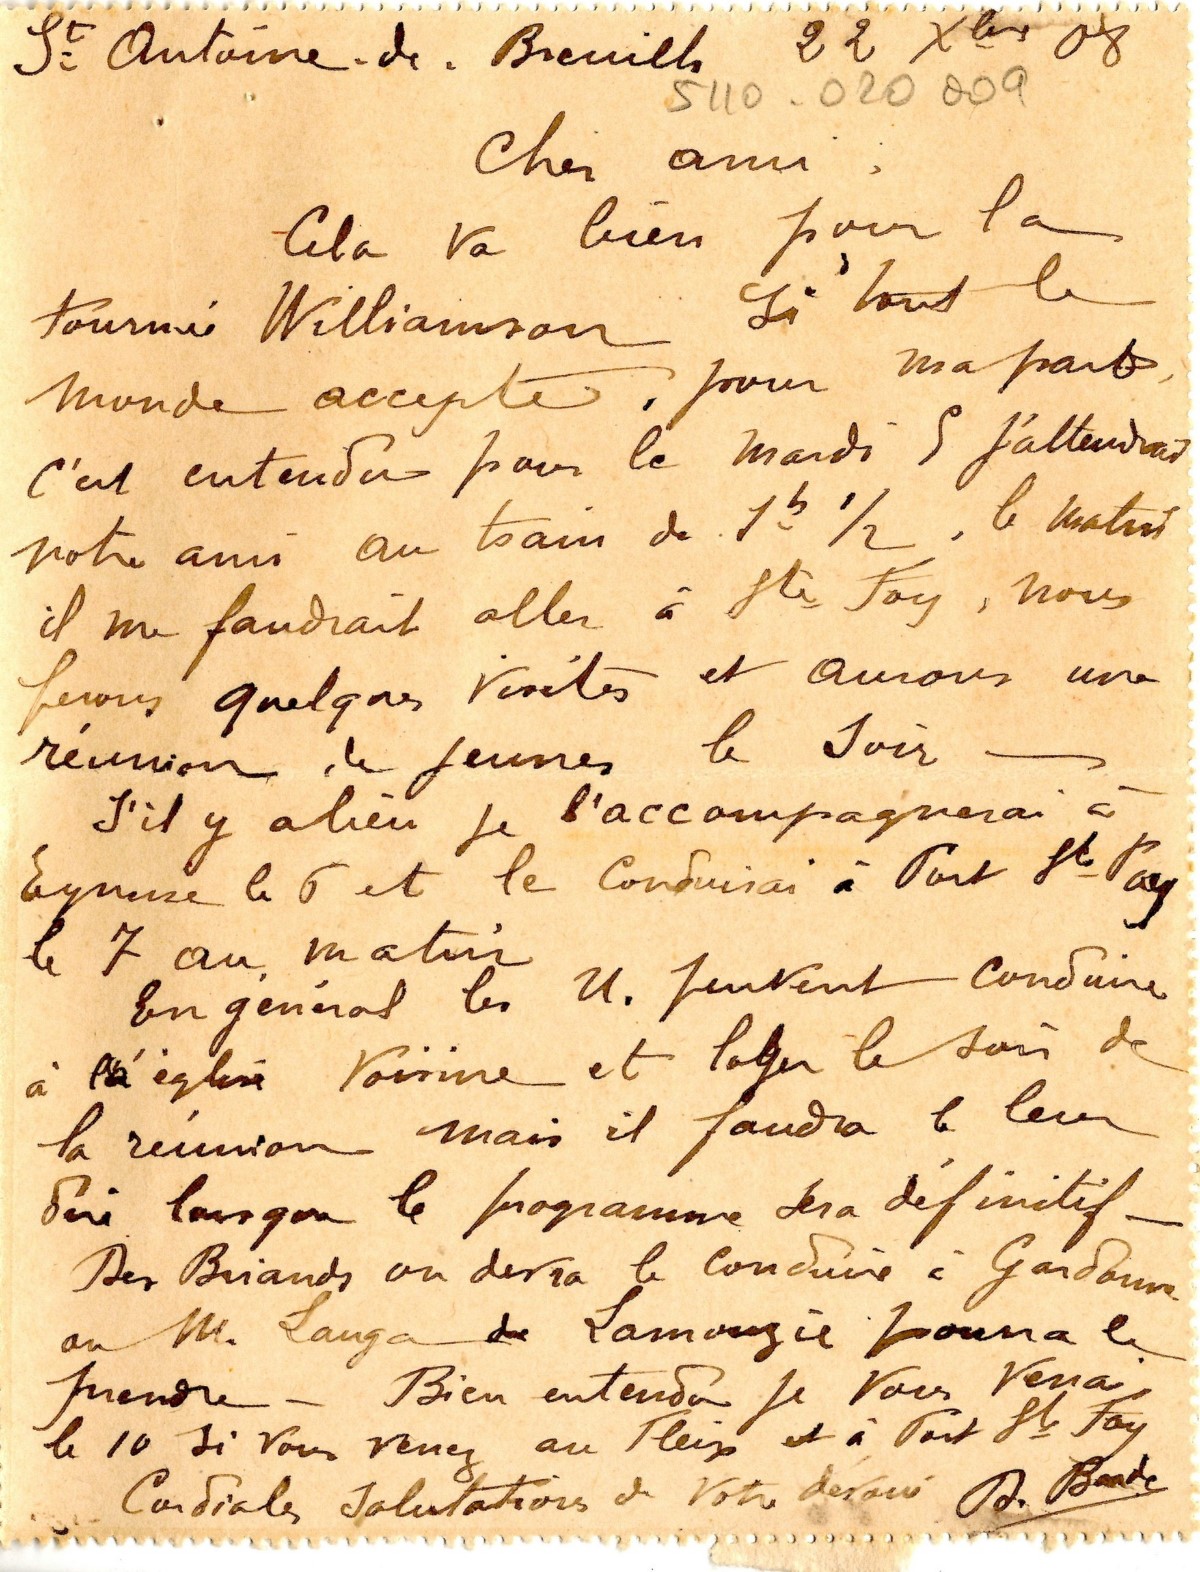 St Antoine-de-Breuilh 22 Xbre 08
5110.020 009
Cher ami,
Cela va bien pour la
tournée Williamson si tout le
monde accepte, pour ma part,
c'est entendu pour le mardi 5 j'attendrai
notre ami au train de 1h 1/2, le matin
il me faudrait aller à Ste Foy, nous
ferons quelques visites et aurons une
réunion de jeunes le soir —
S'il y a lieu je l'accompagnerai à
Eynesse le 6 et le conduirai à Port Ste Foy
le 7 au matin
En général les U. peuvent conduire
à l'église voisine et loger le soir de
la réunion mais il faudra le leur
dire lorsque le programme sera définitif —
Des Briands on devra le conduire à Gardonne
ou M. Lauga de Lamonzie pourra le
prendre — Bien entendu je vous verrai
le 10 si vous venez au Fleix et à Port Ste Foy
Cordiales salutations de votre dévoué